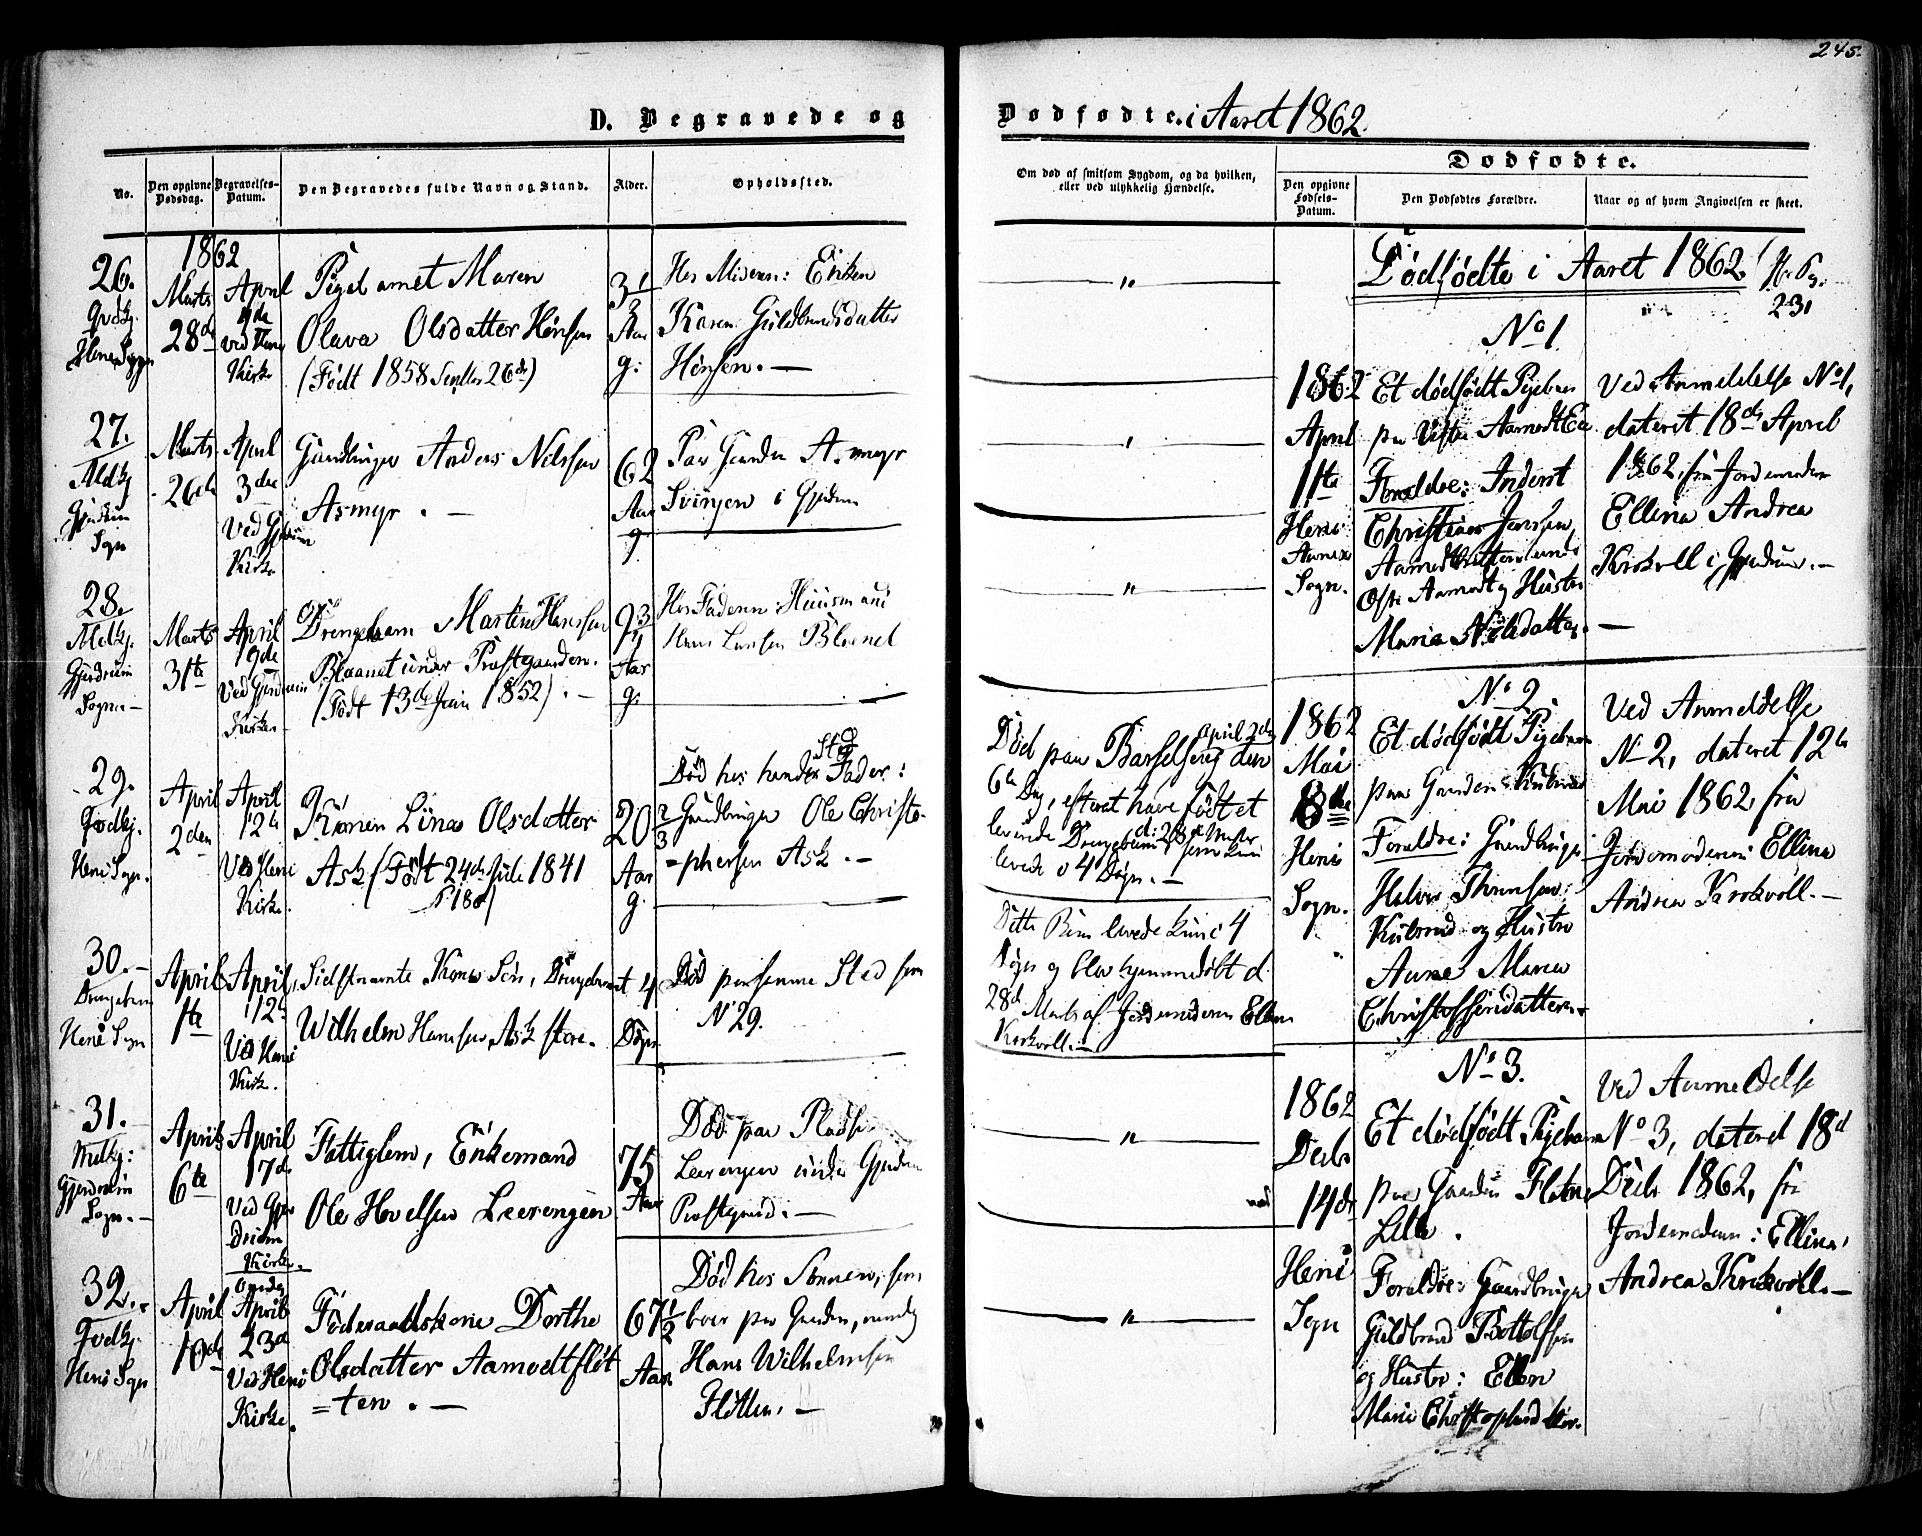 245.
D. Begravede og
Dødfødte. i Aaret 1862.
No.
Den opgivne Dødsdag.
Begravelses-Datum.
Den Begravedes fulde Navn og Stand.
Alder.
Opholdssted.
Om død af smitsom Sygdom, og da hvilken,
eller ved ulykkelig Hændelse.
Dødfødte.
Den opgivne Fødsels-Datum.
Den Dødfødtes Forældre.
Naar og af hvem Angivelsen er skeet.
1862
26.
Marts
28de
April
ved
Kirke
Pigebarnet Maren
Olava Olsdatter Hønsen
(Født 1858 Septbr 26de)
3½
Aar
g:
Hos Moderen: Enken
Karen Guldbrandsdatter
Hønsen. —
27.
Marts
26de
April
3die
Ved
Kirke
Gaardbruger Anders Nilsen
Asmyr. —
62
Aar
g.
Paa Gaarden Asmyr
i Gjerdrum
Sogn
28.
Gjerdrum
Sogn. —
Marts
31te
April
Ved Gjerdrum
Kirke
Drengebarn Martin Hansen
under Præstgaarden.
(Født 13de Juni 1852). —
9¾
Aar
g.
Hos Faderen: Huusmand
Hans Larsen
29.
Heni Sogn.
April
2den
April
12te
Ved Heni
Kirke.
Konen Lina Olsdatter
Ask (Født 24de Juli 1841
20⅔
Aar
g.
Død hos hendes Fader:
Gaardbruger Ole Christo-
-phersen Ask. —
Død paa Barselseng den
April 2den
6te Dag, efter at have født et
levende Drengebarn, som kun
levede 4 Døgn. —
30. —
Drengebarn
Heni Sogn
April
1te
April,
12te
Ved Heni
Kirke.
Sidstnævnte Kones Søn, Drengebarnet
Wilhelm Hansen Ask store.
4
Døgn
Død paa samme Sted som
No 29.
Dette Barn levede kun i 4
Døgn og blev hjemmedøbt d.
28de Marts af Jordemoderen Ellen
Krokvoll. —
31.
Gjerdrum
Sogn. —
April
6te
April
17de
Ved Gjer
drum
Kirke.
Fattiglem, Enkemand
Ole Hovelsen Leerengen
75
Aar
Død paa Pladsen
Leerengen under Gjerdrum
Præstegaard. —
32.
Heni Sogn
April
10de
April
23de
Ved Heni
Kirke.
Føderaadskone Dorthe
Olsdatter Aamodtfløt
=ten. —
67½
Aar
Død hos Sønnen, som
boer paa Gaarden, nemlig
Hans Wilhelmsen
Fløtten. —
Dødfødte i Aaret 1862.
231
No 1.
1862
April
11te
Heni
Annex
Sogn.
Et dødfødt Pigebarn
paa Østre Aamodt Eie
Forældre: Inderst
Christian Jensen,
Østre Aamodt og Hustru
Maria Nilsdatter. —
Ved Anmeldelse No 1,
dateret 18de April
1862, fra Jordemoder
Ellina Andrea
Krokvoll i Gjerdrum. —
No 2.
1862
Mai
8de
Heni
Sogn.
Et dødfødt Pigebarn
paa Gaarden Kulsrud
Forældre: Gaardbruger
Halvor
Kulsrud og Hustru
Anne Maria
Christoffersdatter. —
Ved Anmeldelse
No 2, dateret 12te
Mai 1862, fra
Jordemoderen: Ellina
Andrea Krokvoll. —
No 3.
1862
Decbr
14de
Heni
Sogn
Et dødfødt Pigebarn
paa Gaarden Fløtten
Lille.
Forældre: Gaardbruger
Guldbrand Bottolfsen
og Hustru: Ellen
Marie Christophersdatter.
Ved Anmeldelse
No 3, dateret 18de
Decbr 1862, fra
Jordemoderen: Ellina
Andrea Krokvoll. —